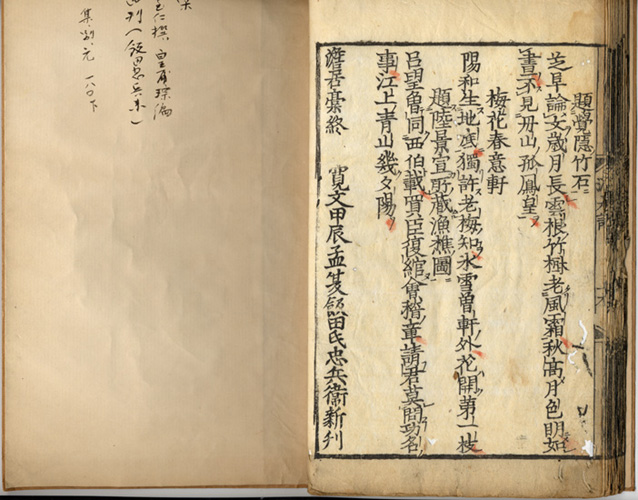 題覺隱竹石
芝早論文歲月長雲根竹樹老風霜秋高月色明如
晝不見丹山孤鳳皇
梅花春意軒
陽和生地底獨許老梅知氷雪曽軒外花開第一枝
題陸景宣所藏漁樵圖
呂望曽同西伯載買臣復綰會稽章請君莫問功名
事江上青山幾夕陽
澹居藁終 寛文甲辰孟夏飯田氏忠兵衛新刊
至仁撰 皇甫琮編
刊(飯田忠兵衛)
集、別、元 一八〇下